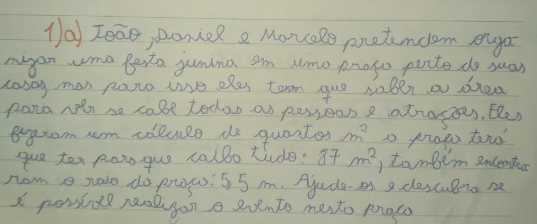 1)a) João, Daniel e Marcelo pretendem orga
nizar uma festa junina em uma praça perto de suas
casas, mas para isso eles tem que saber a área
para ver se cabe todas as pessoas e atrações. Eles
fizeram um cálculo de quantos m² a praça terá
que ter para que caiba tudo: 87 m², também encontra
ram o raio da praça: 5,5 m. Ajude-os e descubra se
é possível realizar o evento nesta praça